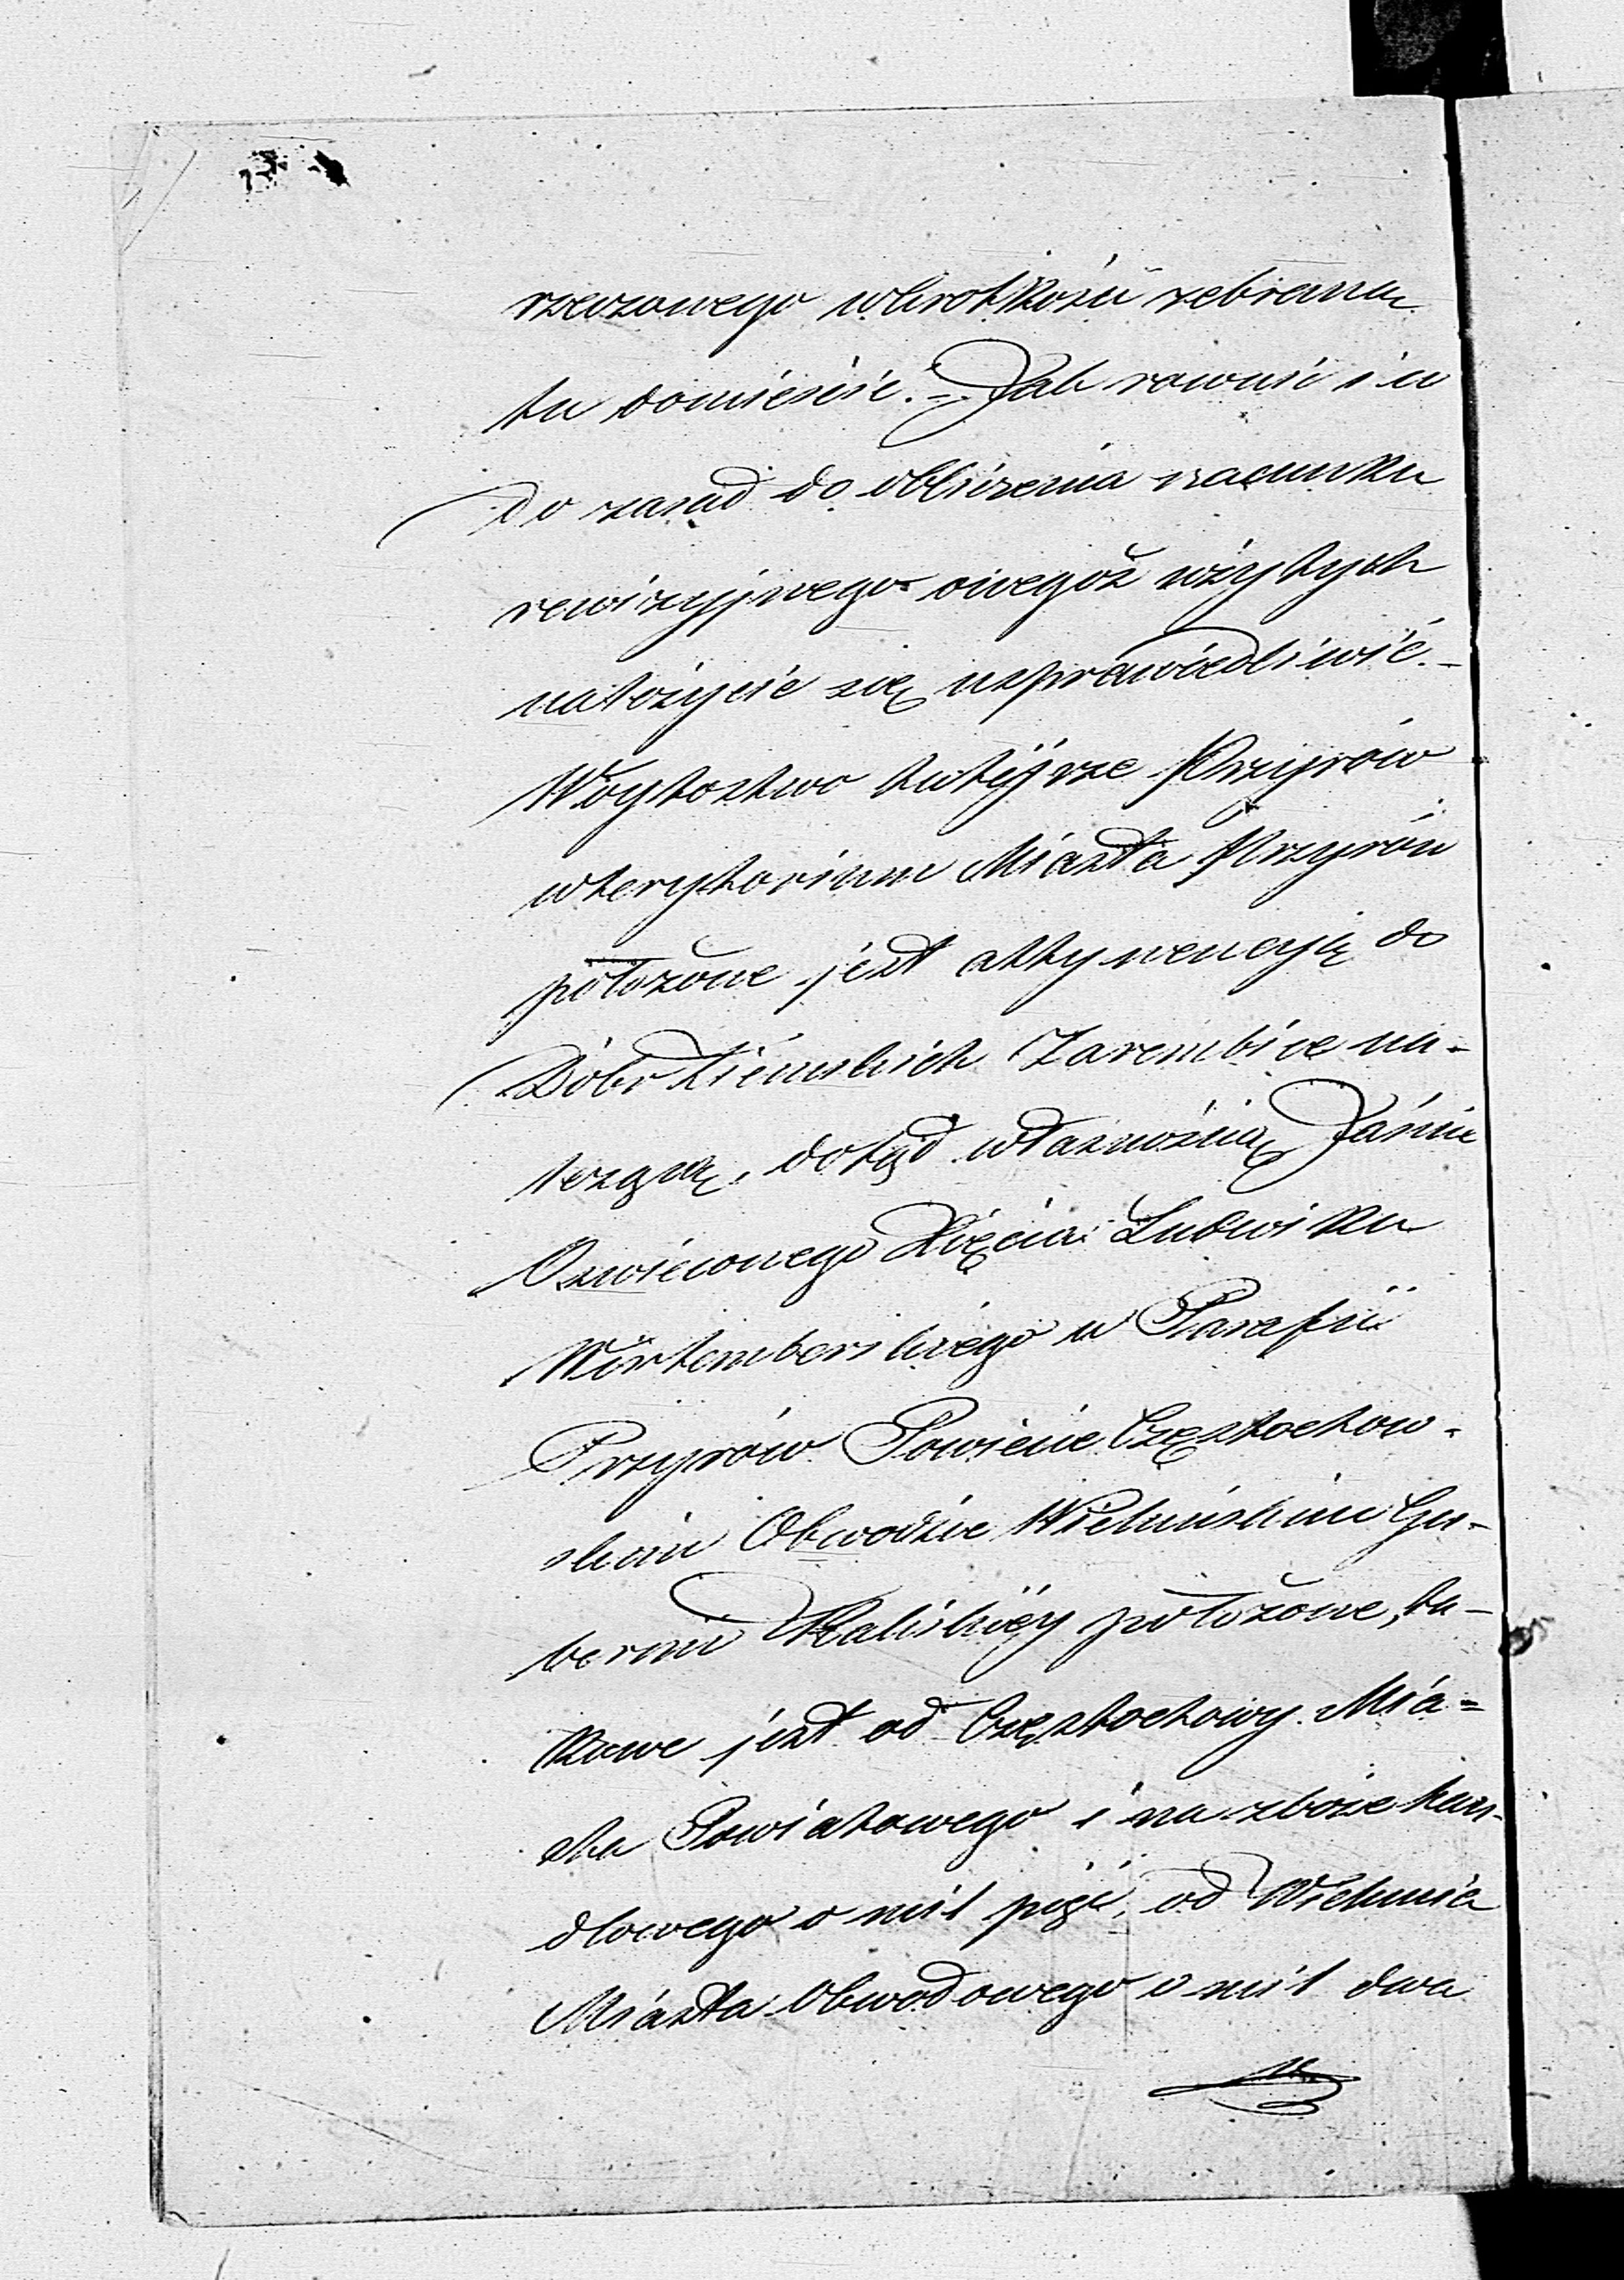 rzeczowego wkrótkości zebrana
tu domieście. – Jak rownie i w
do zasad do obliczenia szacunku
rewizyjnego owegoż użytych
należycie się usprawiedliwić. –
Woytostwo tutéjsze Przyrów
w terytorium Miasta Przyrów
położone jest attynencyią do
Dóbr Ziemskich Zarembice na-
leżącą, dotąd własnością Jaśnie
Oswieconego Xięcia Ludwika
Würtemberskiego w Parafii
Przyrów Powiecie Częstochow-
skim Obwodzie Wieluńskim Gu-
bernii Kaliskiéy położone,
jest od Częstochowy Mia-
sta Powiatowego i na zboże han-
dlowego o mil pięć, od Wielunia
Miasta Obwodowego o mil dwa